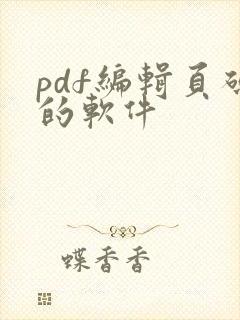 pdf編輯頁碼
的軟件
蝶香香